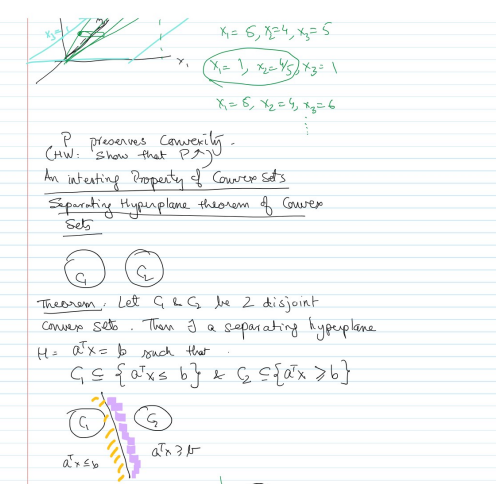 x₃=1
x₁
x₁ = 5, x=4, x₃ = 5
x₁ = 1, x₂ = 4/5, x₃ = 1
x₁ = 5, x₂ = 4, x₃ = 6
⋮
P preserves Convexity.
(HW: Show that P ↗)
An intersting Property of Convex Sets
Separating Hyperplane theorem of Convex
Sets
C₁ C₂
Theorem: Let C₁ & C₂ be 2 disjoint
convex sets. Then ∃ a separating hyperplane
H = aᵀx = b such that.
C₁ ⊆ {aᵀx ≤ b} & C₂ ⊆ {aᵀx ≥ b}
C₁ C₂
aᵀx ≤ b aᵀx ≥ b